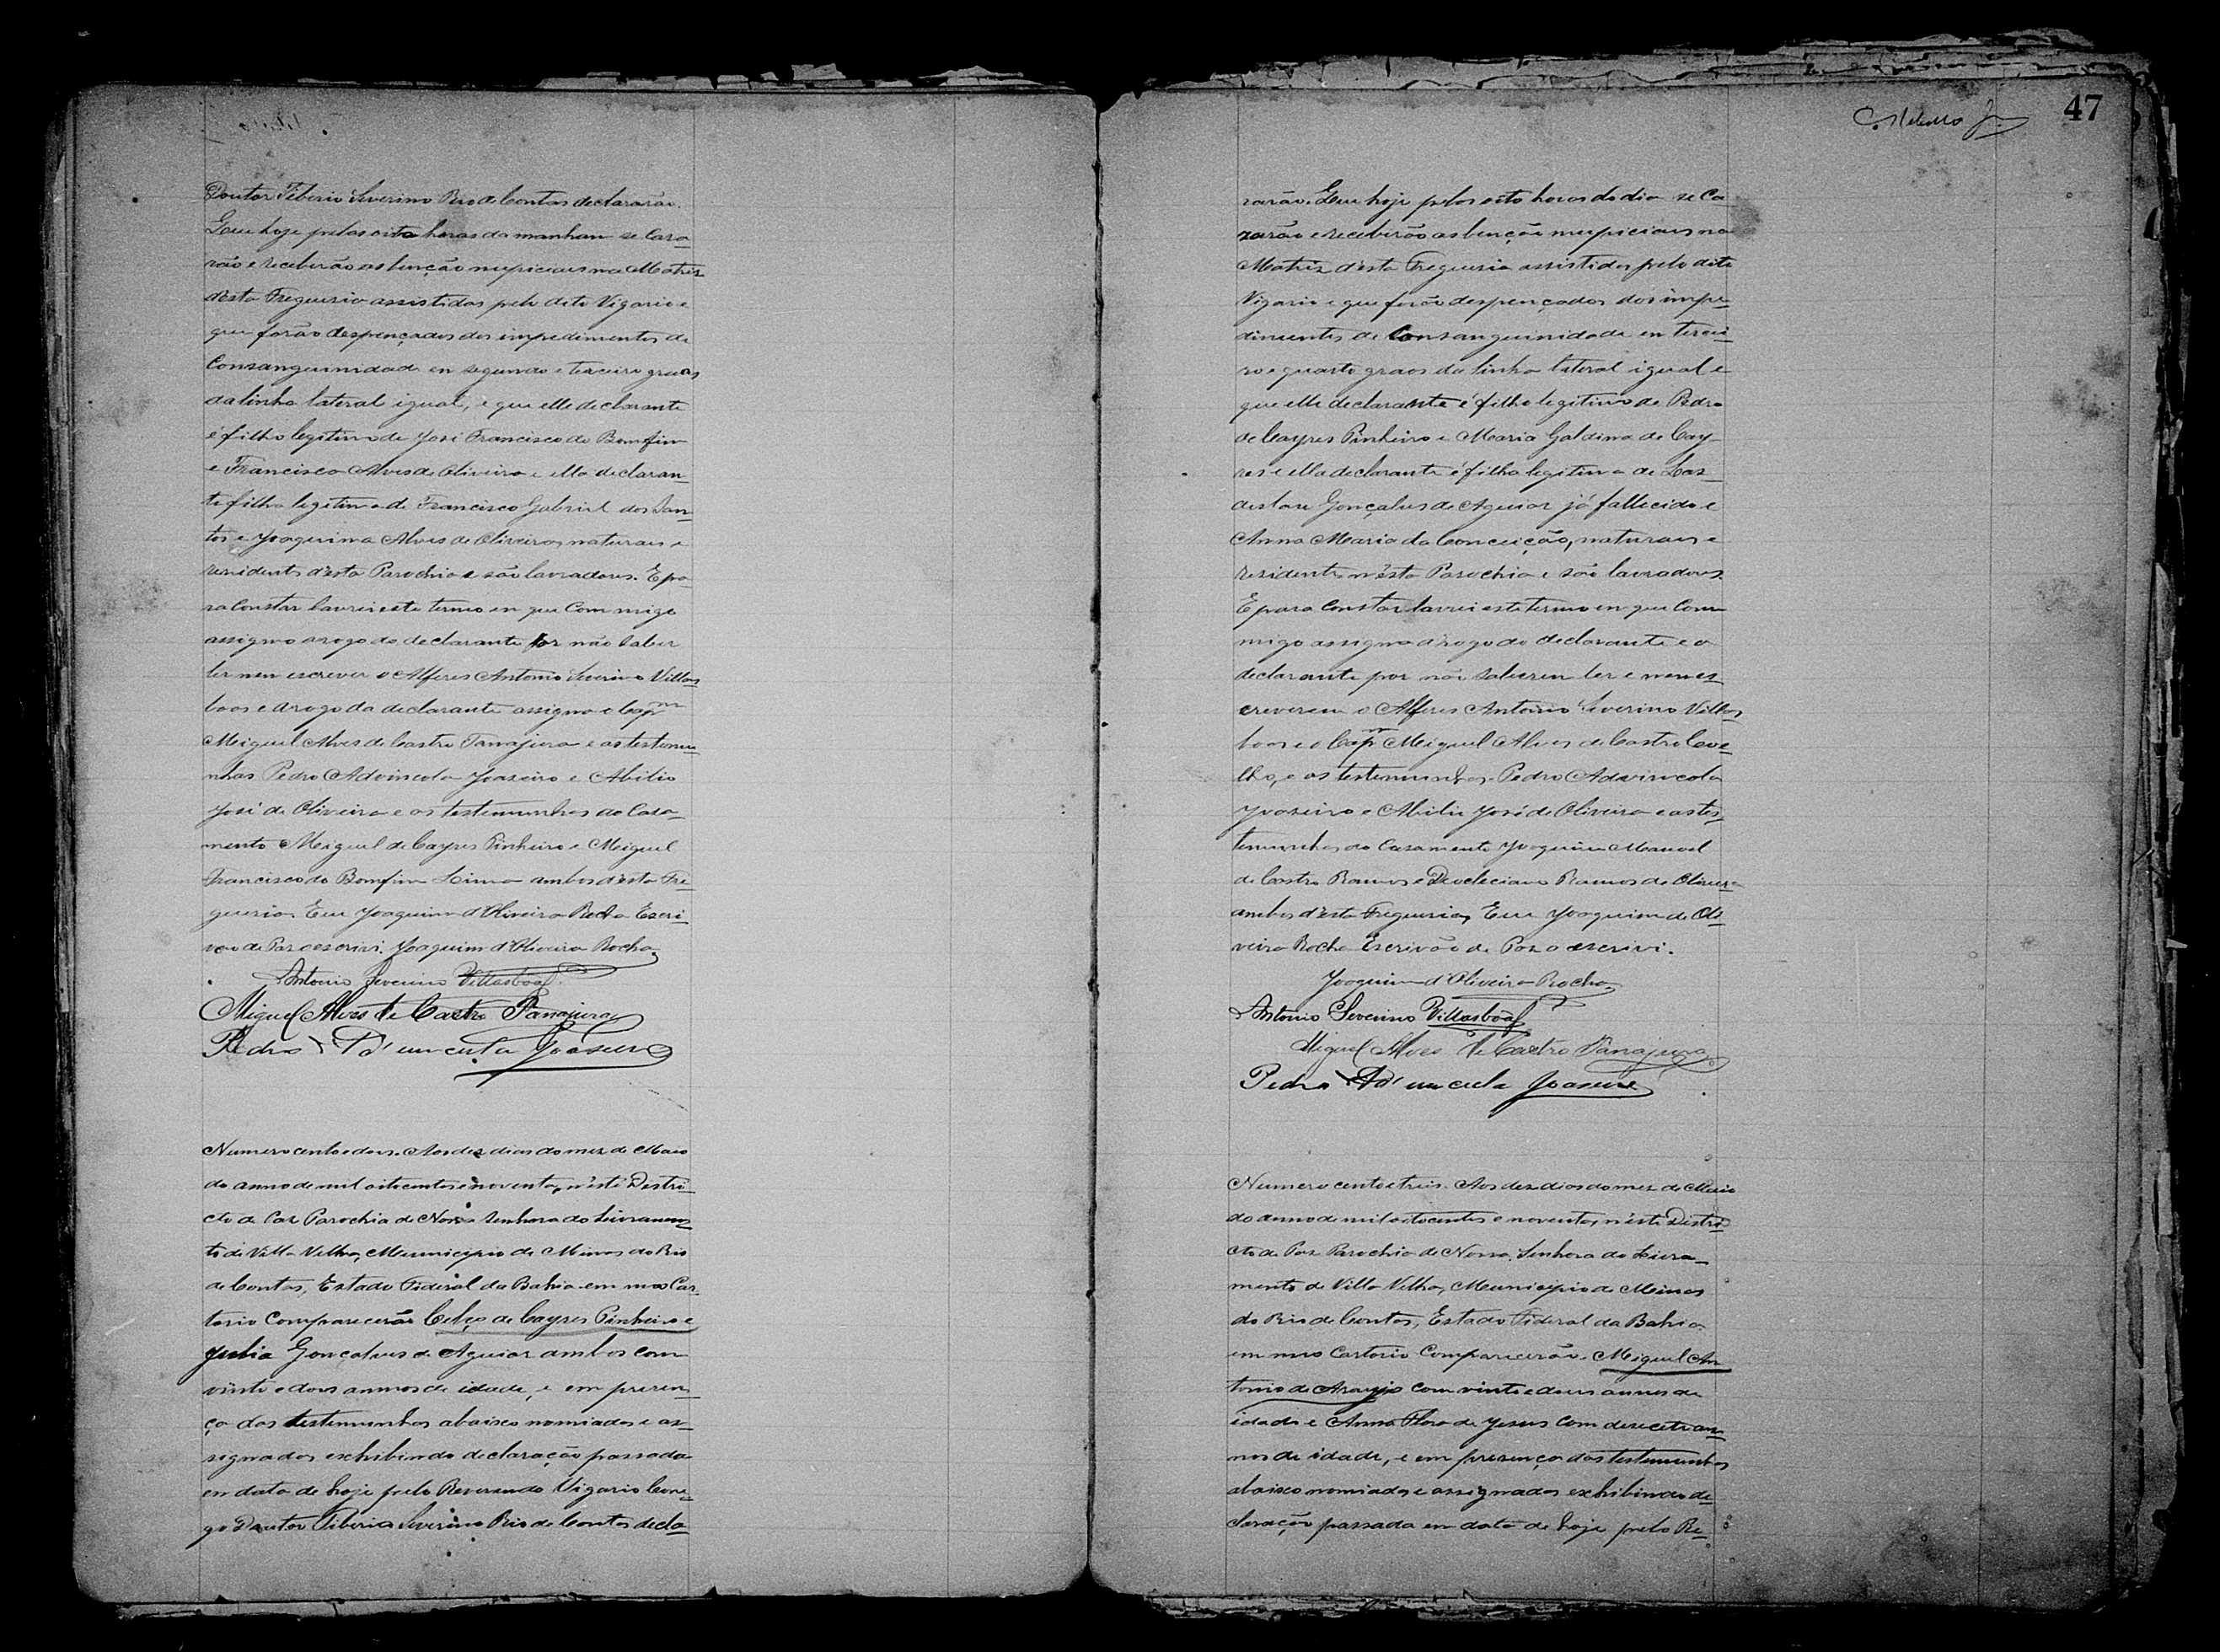 Doutor Tiberio Severino Rio de Contas declararão.
Que hoje pelas oito horas da manhan se Casa-
rão e receberão as benção nupiciaes na Matriz
d'esta Freguesia assistidos pelo dito Vigario e
que forão despençados dos impedimentos de
Consanguinidade en segundo e terceiro graos
da linha lateral igual, e que elle declarante
é filho legitimo de José Francisco do Bomfim
e Francisca Alves de Oliveira e ella declaran-
te filha legitima de Francisco Gabriel dos San-
tos e Joaquina Alves de Oliveira, naturais e
residents d'esta Parochia e são lavradores. E pa-
ra Constar lavrei este termo en que Commigo
assigno a rogo do declarante por não saber
ler nem escrever o Alferes Antonio Severino Villas
boas e a rogo da declarante assigna o Capm
Meiguel Alves de Castro Tanajura e as testemu-
nhas Pedro Advincola Joazeiro e Abilio
José de Oliveira e as testemunhas do Casa-
mento Meiguel de Cayres Pinheiro e Meiguel
Francisco do Bomfim Lima ambos d'esta Fre-
guesia. Eu Joaquim d'Oliveira Rocha Escri-
vão de Paz o escrivi. Joaquim d'Oliveira Rocha
Antonio Severino Villasbôas.
Miguel Alves de Castro Tanajura
Pedro Ad'uncula Joaseiro
Numero cento e dous. Aos dez dias do mez de Maio
do anno de mil oitocentos e noventa, n'este Destri-
cto de Paz Parochia de Nossa Senhora do Livramen-
to de Villa Velha, Meunicipio de Minas do Rio
de Contas, Estado Federal da Bahia em meo Car-
torio Comparecerão Celço de Cayres Pinheiro e
Julia Gonçalves de Aguiar ambos com
vinte e dous annos de idade, e em presen-
ça das testemunhas abaixo nomiados e as-
signados exhibindo declaração passada
en data de hoje pelo Reverendo Vigario Cone-
go Doutor Tiberio Severino Rio de Contas decla-
47
rarão. Que hoje pelas oito horas do dia se Ca
zarão e receberão as benção nupiciaes na
Matriz d'esta Freguesia assistidos pelo dito
Vigario e que forão despençados dos impe-
dimentos de Consanguinidade en tercei-
ro e quarto graos da linha lateral igual e
que elle declarante é filho legitimo de Pedro
de Cayres Pinheiro e Maria Galdina de Cay-
res e ella declarante é filha legitima de
Gonçalves de Aguiar já fallecido e
Anna Maria da Conceição, naturaes e
residentes n'esta Parochia e são lavradores.
E para Constar lavrei este termo en que Com
migo assigna a rogo do declarante e a
declarante por não saberem ler e nem es-
creverem o Alferes Antonio Severino Villas
boas e o Capm Meiguel Alves de Castro Coe-
lho, e as testemunhas Pedro Advincola
Joazeiro e Abilio José de Oliveira e as tes-
temunhas do Casamento Joaquim Manoel
de Castro Ramos e Deocleciano Ramos de Oliveira
ambos d'esta Freguesia, Eu Joaquim de Oli-
veira Rocha Escrivão de Paz o escrivi.
Joaquim d'Oliveira Rocha
Antonio Severino Villasbôas
Miguel Alves de Castro Tanajura
Pedro Ad'uncula Joaseiro
Numero cento e treis. Aos dez dias do mez de Maio
do anno de mil oitocentos e noventa, n'este Destri-
cto de Paz Parochia de Nossa Senhora do Livra-
mento de Villa Velha, Meunicipio de Meinas
do Rio de Contas, Estado Federal da Bahia
em meo Cartorio Comparecerão Meiguel An-
tonio de Araujo com vinte e dous annos de
idade e Anna Flora de Jesus Com desecete an-
nos de idade, e em presença das testemunhas
abaixo nomiados e assignados exhibindo de-
claração passada em data de hoje pelo Re-